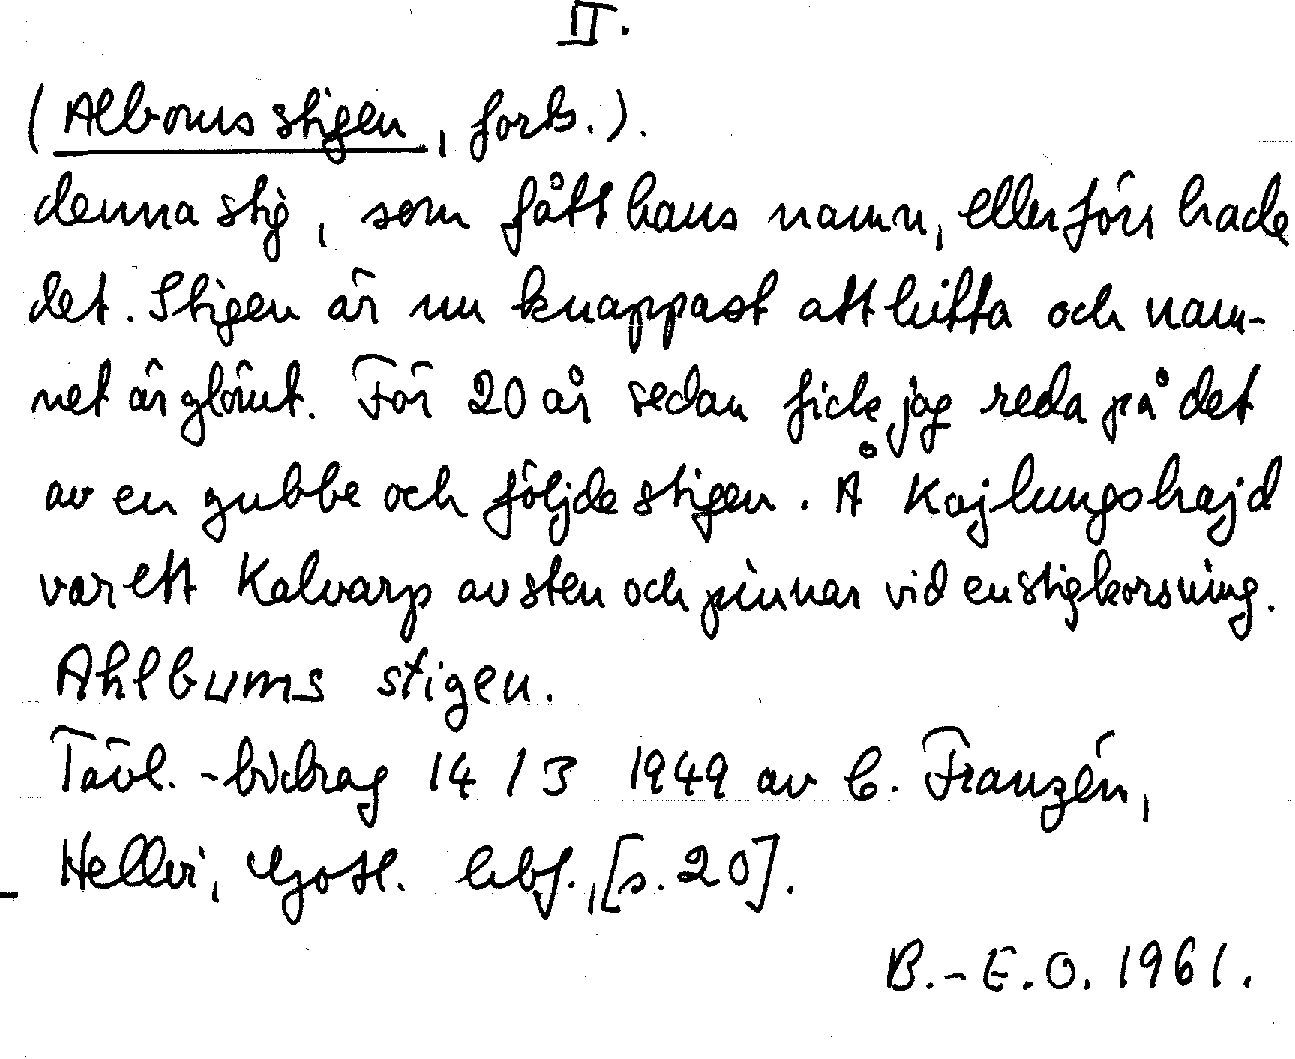 II.
(Alboms stigen, forts.).
denna stig, som fått hans namn, eller förr hade
det. Stigen är nu knappast att hitta och nam-
net är glömt. För 20 år sedan fick jag reda på det
av en gubbe och följde stigen. Å Kajlungshajd
var ett Kalvarp av sten och pinnar vid en stigkorsning.
Ahlbums stigen.
Tävl.-bidrag 14/3 1949 av C. Franzén,
Hellvi, Gotl. hbf., [s. 20].
B.-E.O. 1961.